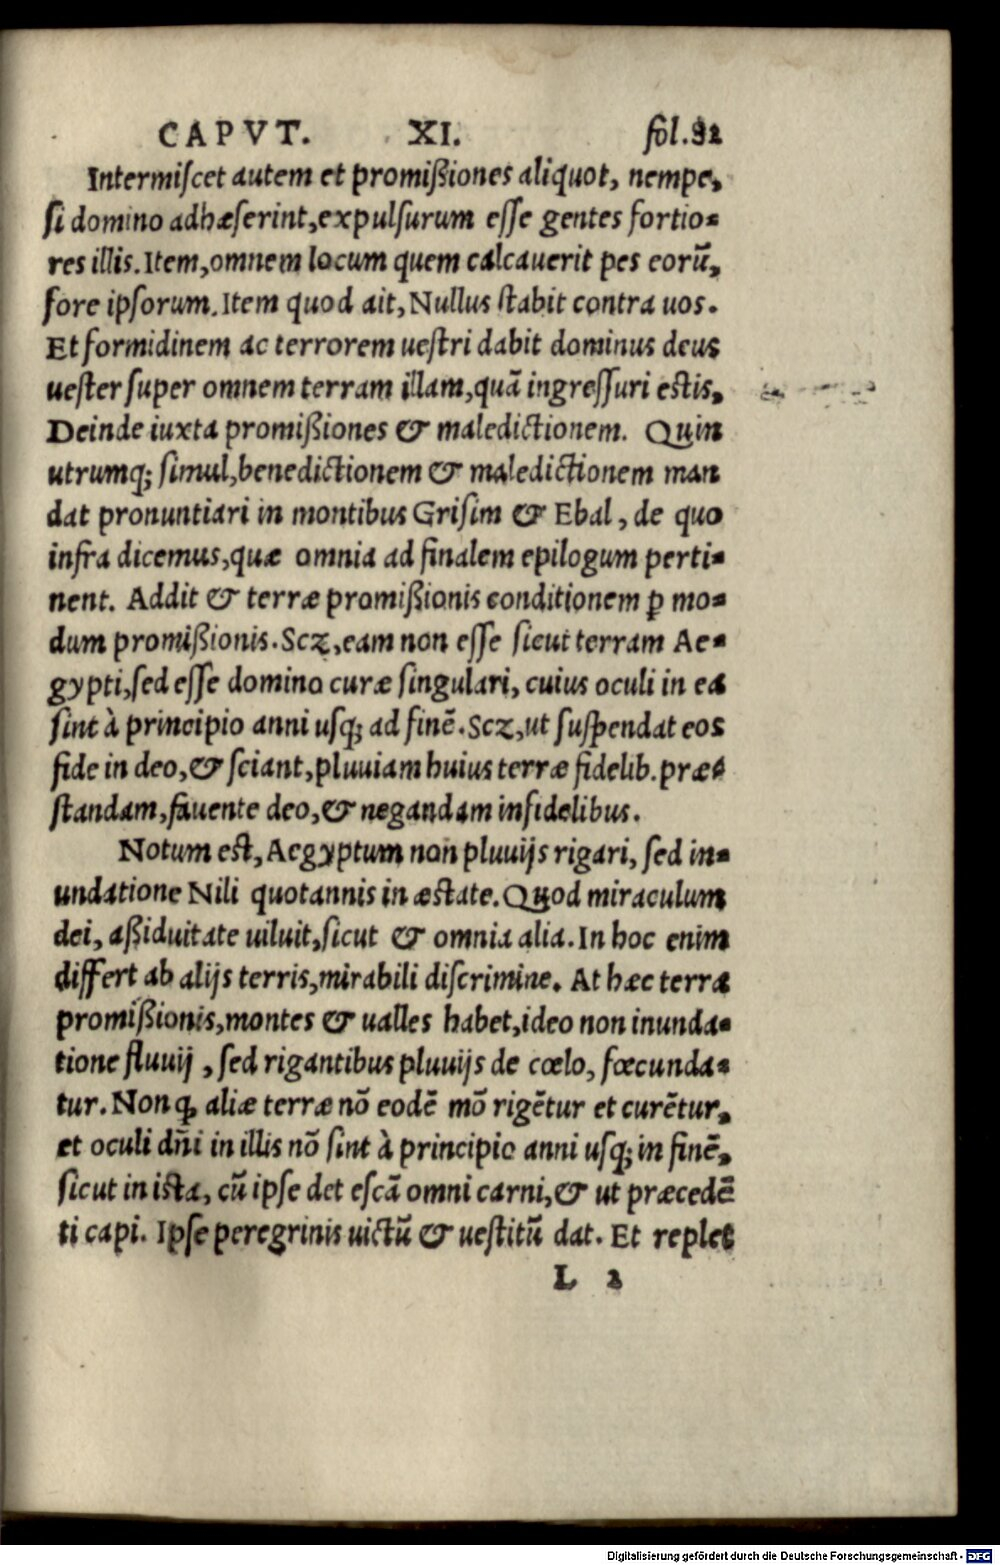 CAPVT. XI. fol.82
Intermiſcet autem et promißiones aliquot, nempe,
ſi domino adhæſerint, expulſurum eſſe gentes fortio-
res illis. Item, omnem locum quem calcauerit pes eorū,
fore ipſorum. Item quod ait, Nullus ſtabit contra uos.
Et formidinem ac terrorem ueſtri dabit dominus deus
ueſter ſuper omnem terram illam, quā ingreſſuri eſtis,
Deinde iuxta promißiones & maledictionem. Quin
utrumq; ſimul, benedictionem & maledictionem man
dat pronuntiari in montibus Griſim & Ebal, de quo
infra dicemus, quæ omnia ad finalem epilogum perti-
nent. Addit & terræ promißionis conditionem ꝑ mo-
dum promißionis. Scz, eam non eſſe ſicut terram Ae-
gypti, ſed eſſe domino curæ ſingulari, cuius oculi in ea
ſint à principio anni uſq; ad finē. Scz, ut ſuſpendat eos
fide in deo, & ſciant, pluuiam huius terræ fidelib. præ-
ſtandam, fauente deo, & negandam infidelibus.
Notum eſt, Aegyptum non pluuijs rigari, ſed in-
undatione Nili quotannis in æſtate. Quod miraculum
dei, aßiduitate uiluit, ſicut & omnia alia. In hoc enim
differt ab alijs terris, mirabili diſcrimine. At hæc terra
promißionis, montes & ualles habet, ideo non inunda-
tione fluuij, ſed rigantibus pluuijs de cœlo, fœcunda-
tur. Non ꝙ aliæ terræ nō eodē mō rigētur et curētur,
et oculi dn̄i in illis nō ſint à principio anni uſq; in finē,
ſicut in iſta, cū ipſe det eſcā omni carni, & ut præcedē
ti capi. Ipſe peregrinis uictū & ueſtitū dat. Et replet
L 2
Digitalisierung gefördert durch die Deutsche Forschungsgemeinschaft - DFG